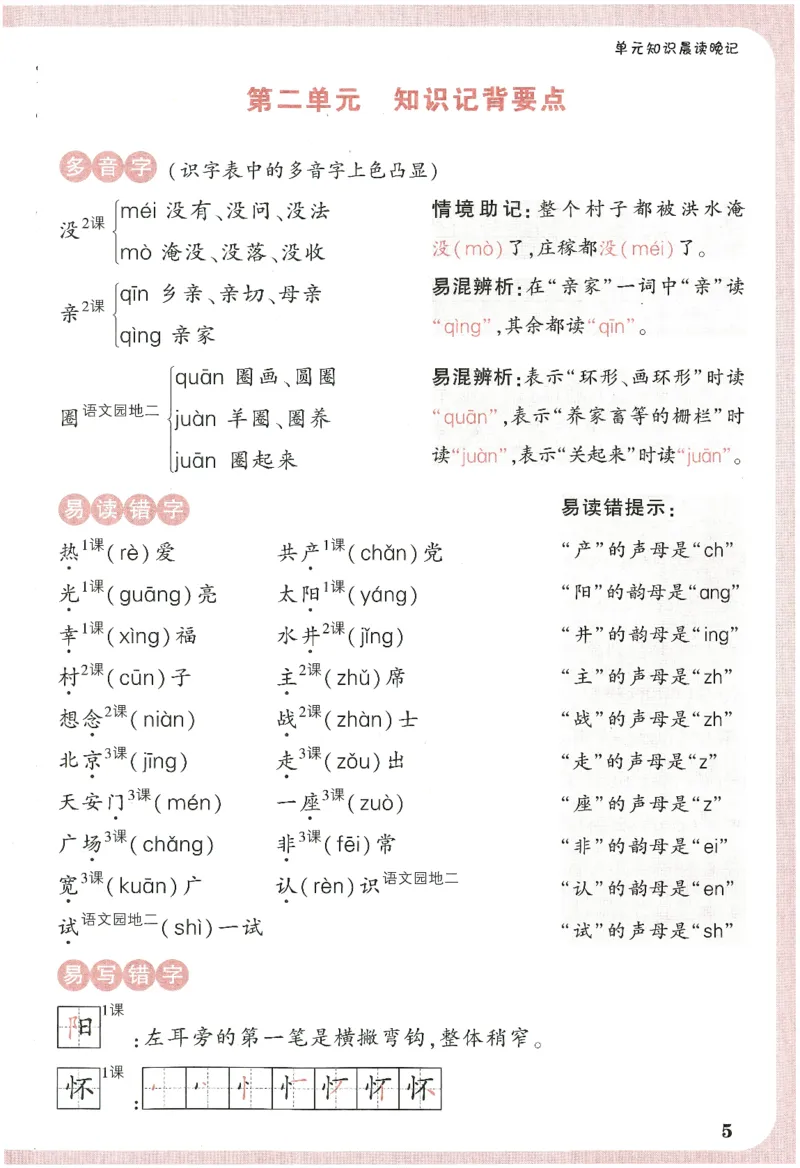 单元知识晨读晚记
第二单元 知识记背要点
多音字 (识字表中的多音字上色凸显)
没2课 méi 没有、没问、没法
mò 淹没、没落、没收
情境助记:整个村子都被洪水淹
没(mò)了,庄稼都没(méi)了。
亲2课 qīn 乡亲、亲切、母亲
qìng 亲家
易混辨析:在“亲家”一词中“亲”读
“qìng”,其余都读“qīn”。
圈语文园地二 quān 圈画、圆圈
juàn 羊圈、圈养
juān 圈起来
易混辨析:表示“环形、画环形”时读
“quān”,表示“养家畜等的栅栏”时
读“juàn”,表示“关起来”时读“juān”。
易读错字 易读错提示:
热1课(rè)爱 共产1课(chǎn)党 “产”的声母是“ch”
光1课(guāng)亮 太阳1课(yáng) “阳”的韵母是“ang”
幸1课(xìng)福 水井2课(jǐng) “井”的韵母是“ing”
村2课(cūn)子 主2课(zhǔ)席 “主”的声母是“zh”
想念2课(niàn) 战2课(zhàn)士 “战”的声母是“zh”
北京3课(jīng) 走3课(zǒu)出 “走”的声母是“z”
天安门3课(mén) 一座3课(zuò) “座”的声母是“z”
广场3课(chǎng) 非3课(fēi)常 “非”的韵母是“ei”
宽3课(kuān)广 认(rèn)识语文园地二 “认”的韵母是“en”
试语文园地二(shì)一试 “试”的声母是“sh”
易写错字
阳1课:左耳旁的第一笔是横撇弯钩,整体稍窄。
怀1课:
5